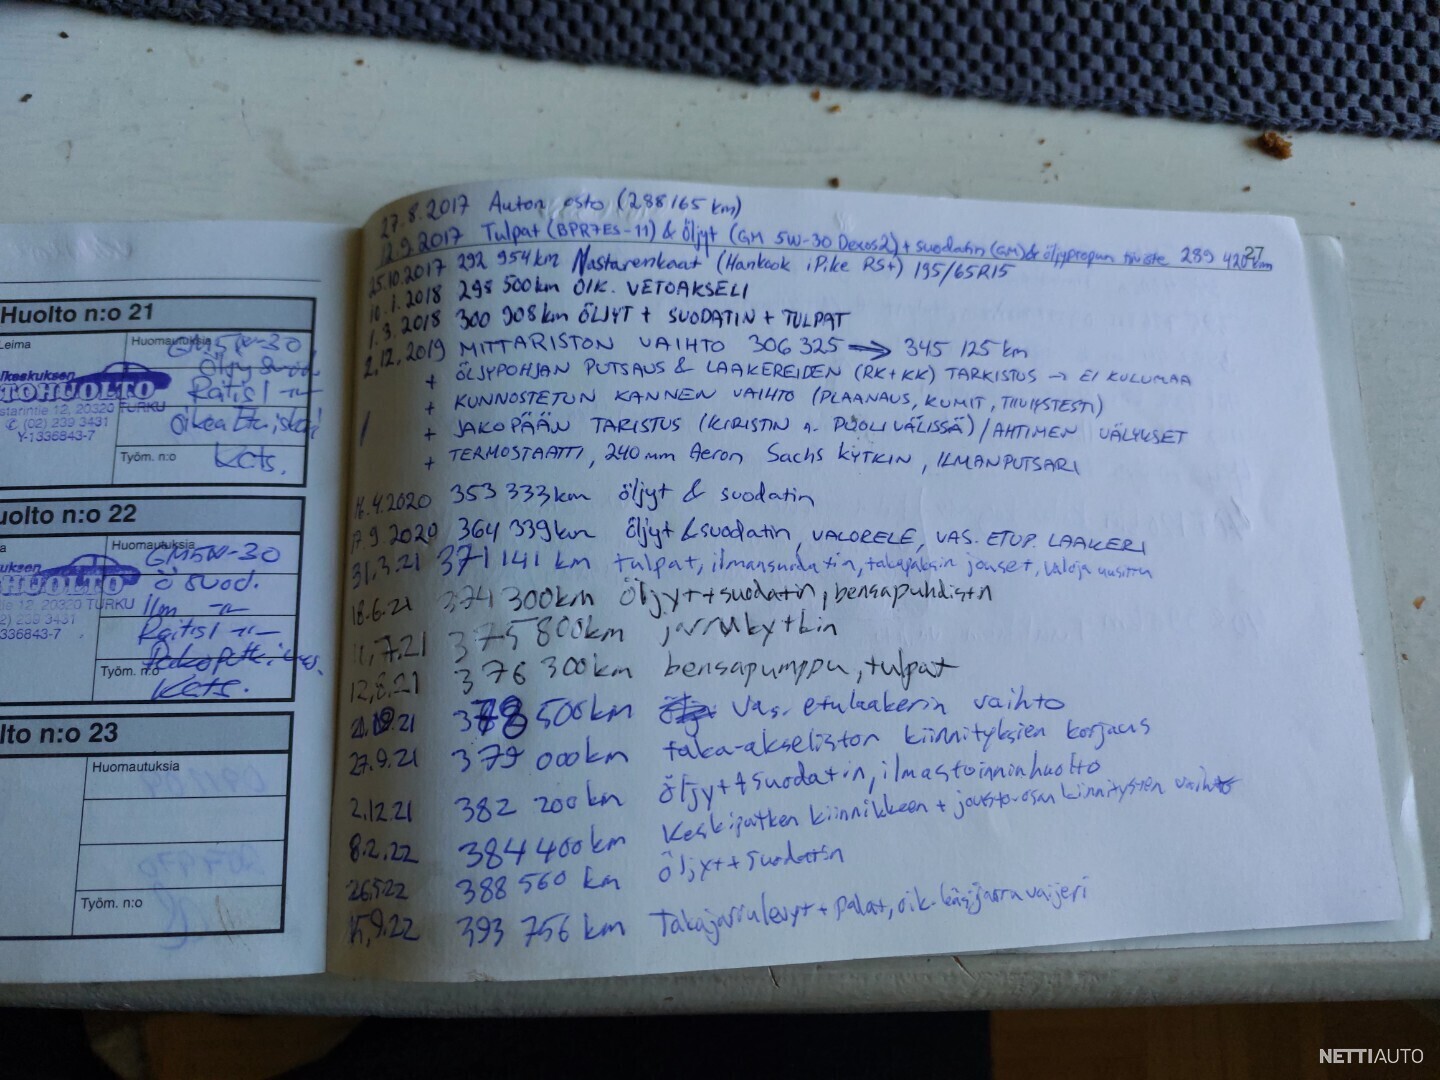 Huolto n:o 21
Leima
Huomautuksia
GM5W-30
Öljy Suod
Raitisl -"-
Oikea Etu
Kets.
lkeskuksen
TOHUOLTO
starintie 12, 20320 TURKU
✆ (02) 239 3431
Y-1336843-7
Työm. n:o
uolto n:o 22
a
Huomautuksia
GM5W-30
ö suod.
Ilm -"-
Raitisl -"-
Kets.
uksen
TOHUOLTO
tie 12, 20320 TURKU
2) 239 3431
336843-7
Työm. n:o
lto n:o 23
Huomautuksia
Työm. n:o
27.8.2017 Auton osto (288165 km)
12.9.2017 Tulpat (BPR7ES-11) & öljyt (GM 5W-30 Dexos2) + suodatin (GM) & öljypropun tiiviste 289 427 km
25.10.2017 292 954km Nastarenkaat (Hankook iPike RS+) 195/65R15
10.1.2018 298 500km OIK. VETOAKSELI
1.3.2018 300 908km ÖLJYT + SUODATIN + TULPAT
2.12.2019 MITTARISTON VAIHTO 306 325 → 345 125 km
+ ÖLJYPOHJAN PUTSAUS & LAAKEREIDEN (RK+KK) TARKISTUS → EI KULUMAA
+ KUNNOSTETUN KANNEN VAIHTO (PLAANAUS, KUMIT, TIIVIYSTESTI)
+ JAKOPÄÄN TARISTUS (KIRISTIN n. PUOLIVÄLISSÄ) / AHTIMEN VÄLYKSET
+ TERMOSTAATTI, 240mm Aeron Sachs KYTKIN, ILMANPUTSARI
16.4.2020 353 333km öljyt & suodatin
17.9 2020 364 339km öljyt & suodatin, VALORELE, VAS. ETUP. LAAKERI
31.3.21 371 141 km tulpat, ilmansuodatin, takajousen jouset, valoja uusittu
18.6.21 374 300km Öljyt+suodatin, bensapuhdistin
11,7.21 375 800km jarrukytkin
12,8.21 376 300km bensapumppu, tulpat
378 500km vas. etulaakerin vaihto
27.9.21 379 000km taka-akseliston kiinnityksien korjaus
2.12.21 382 200km öljyt+suodatin, ilmastoinninhuolto
8.2.22 384 400km Keskiputken kiinnikkeen + joustoosan kiinnitysten vaihto
26.5.22 388 560 km öljyt+suodatin
15,9.22 393 756 km Takajarrulevyt + palat, oik. käsijarruvaijeri
NETTIAUTO